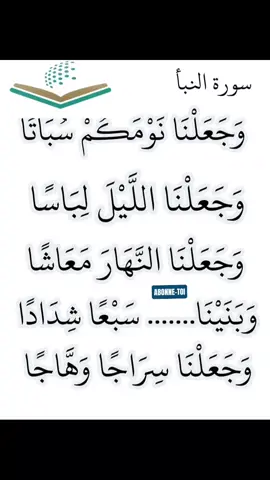 سورة النبأ
وَجَعَلْنَا نَوْمَكَمْ سُبَاتًا
وَجَعَلْنَا اللَّيْلَ لِبَاسًا
وَجَعَلْنَا النَّهَارَ مَعَاشًا
ABONNE-TOI
وَبَنَيْنَا....... سَبْعًا شِدَادًا
وَجَعَلْنَا سِرَاجًا وَهَّاجًا